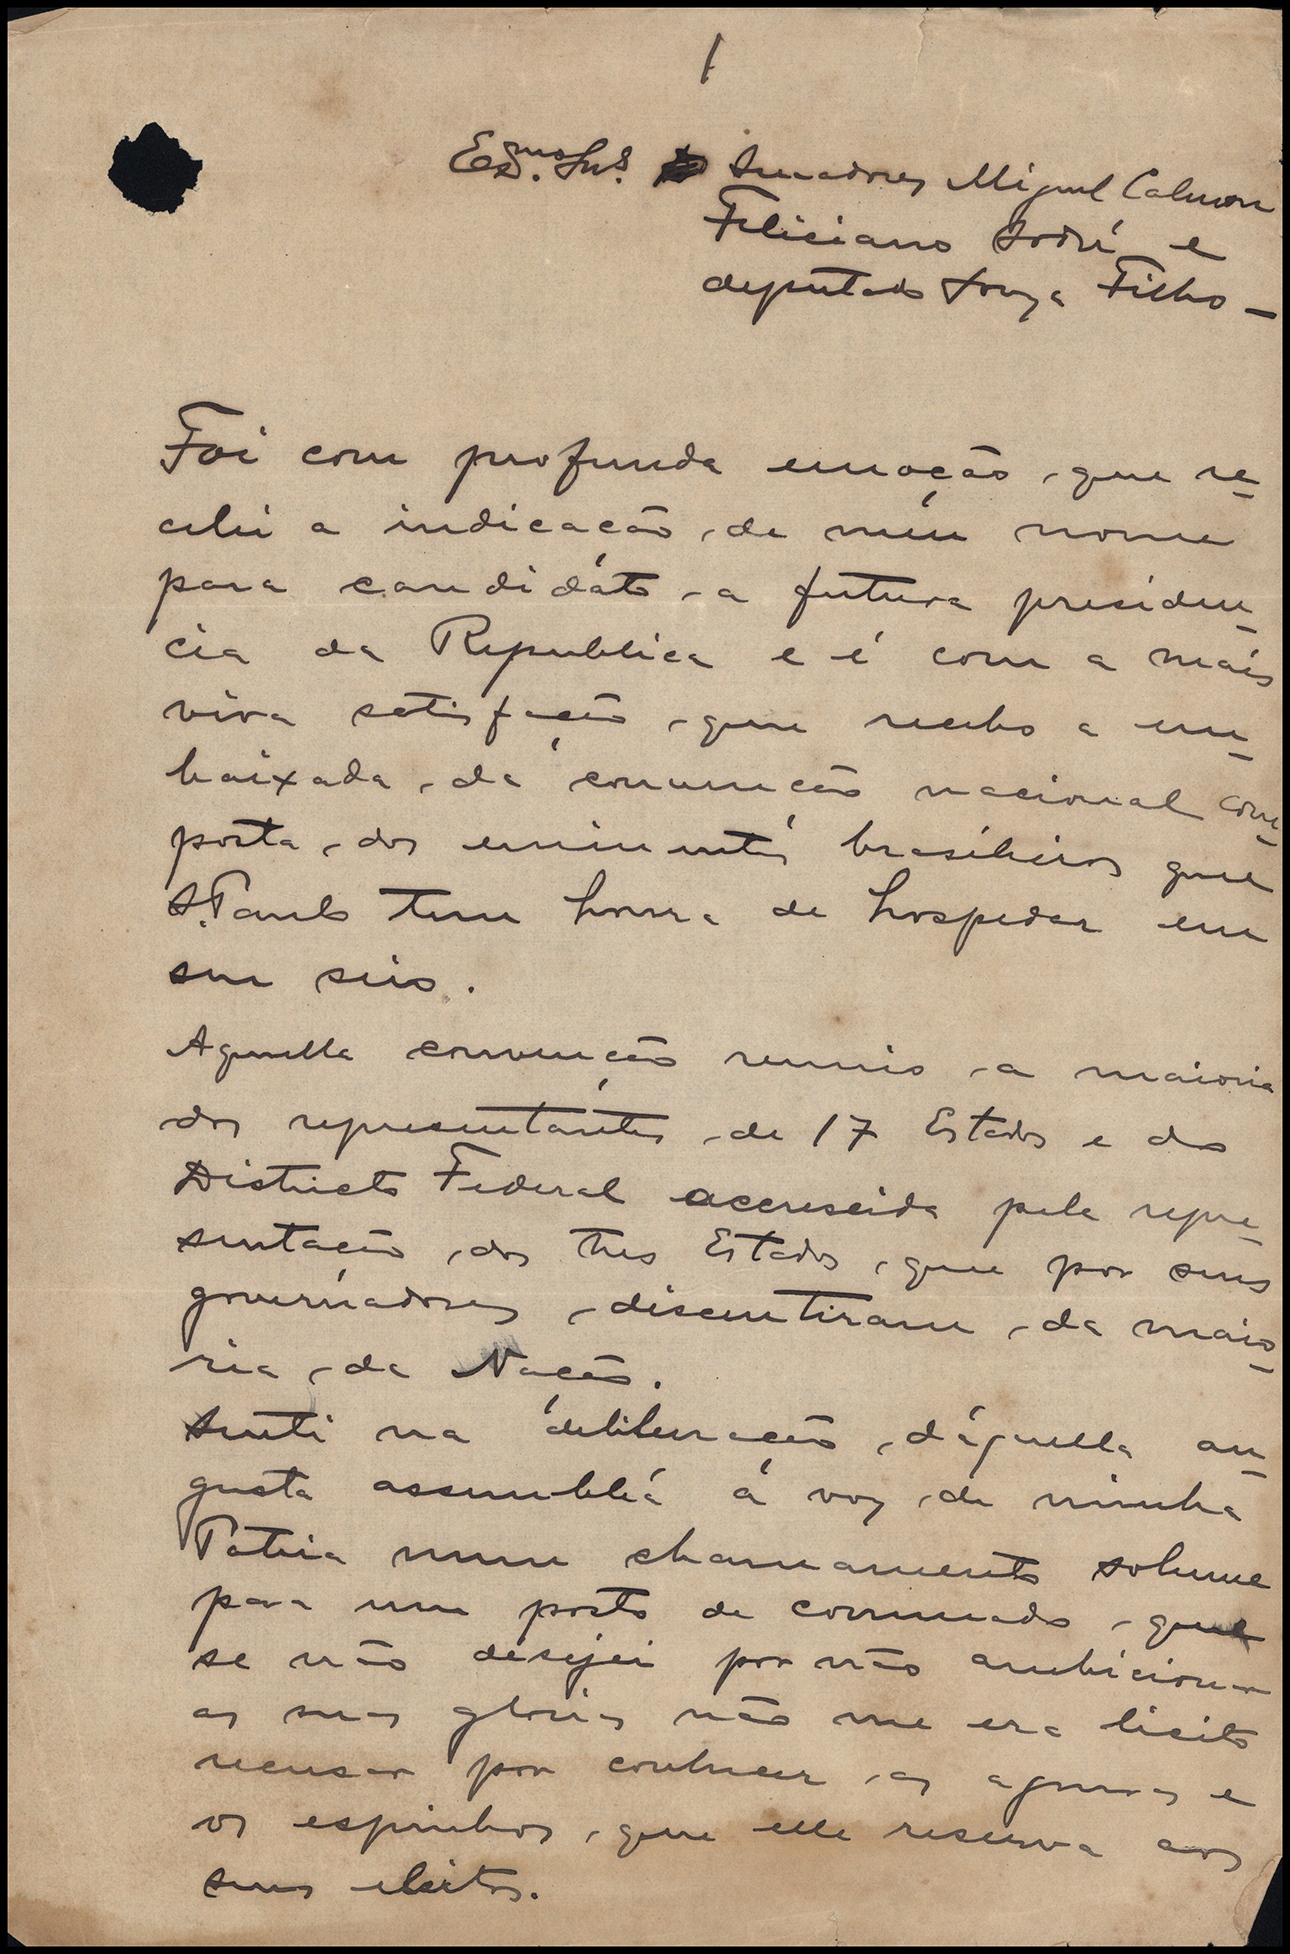 1
Exmos. Snrs. Senadores Miguel Calmon
Feliciano Sodré e
deputado Souza Filho –
Foi com profunda emoção, que re-
cebi a indicação, de meu nome
para candidato, a futura presiden-
cia da Republica e é com a mais
viva satisfação, que recebo a em-
baixada, da convenção nacional com-
posta, dos eminentes brasileiros que
S. Paulo tem honra de hospedar em
seu seio.
Aquella convenção reunio, a maioria
dos representantes, de 17 Estados e do
Districto Federal accrescida pela repre-
sentação, dos tres Estados, que por seus
governadores, discentiram, da maio-
ria, da Nação.
Senti na deliberação, dáquella au-
gusta assembléa á voz, de minha
Patria num chamamento solemne
para um posto de commado, que
se não desejei por não ambicionar
as suas glorias não me era licito
recusar por conhecer, as agruras e
os espinhos, que elle reserva aos
seus eleitos.